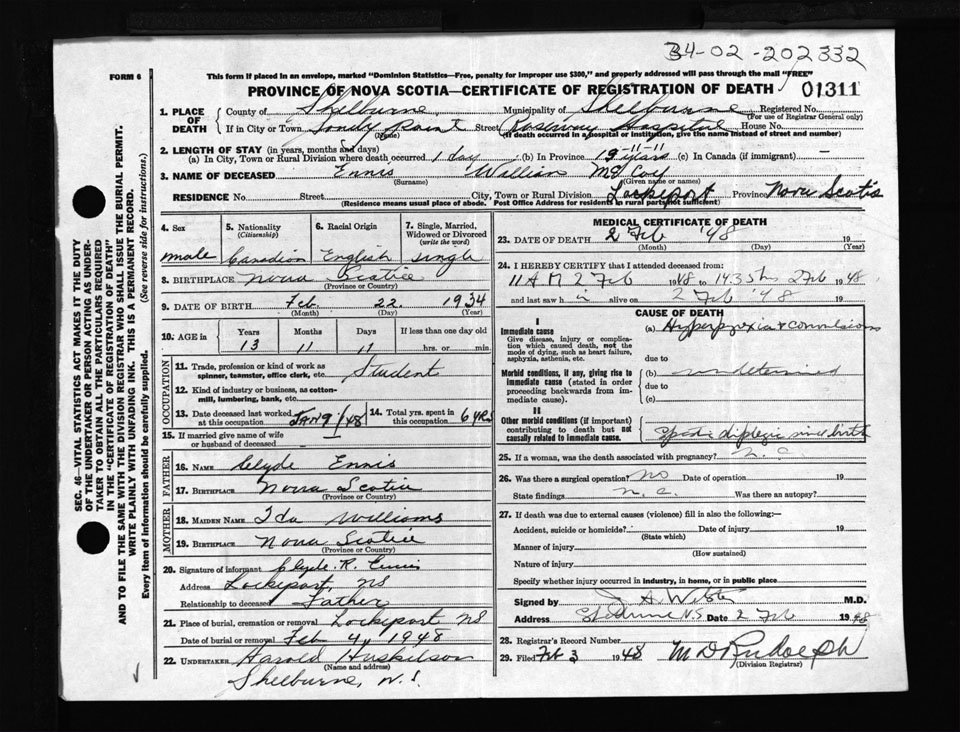 34-02-202332
FORM 6
This form if placed in an envelope, marked "Dominion Statistics—Free, penalty for improper use $300," and properly addressed will pass through the mail "FREE"
PROVINCE OF NOVA SCOTIA—CERTIFICATE OF REGISTRATION OF DEATH 01311
1. PLACE OF DEATH
County of Shelburne Municipality of Shelburne Registered No.
(For use of Registrar General only)
If in City or Town Sandy Point Street Roseway Hospital House No.
(Name) (If death occurred in a hospital or institution, give name instead of street and number)
2. LENGTH OF STAY (in years, months and days)
(a) In City, Town or Rural Division where death occurred 1 day (b) In Province 13 years -11-11 (c) In Canada (if immigrant) —
3. NAME OF DECEASED Ennis William McCoy
(Surname) (Given name or names)
RESIDENCE No. Street City, Town or Rural Division Lockeport Province Nova Scotia
(Residence means usual place of abode. Post Office Address for residents in rural parts not sufficient)
4. Sex 5. Nationality (Citizenship) 6. Racial Origin 7. Single, Married, Widowed or Divorced (write the word)
male Canadian English single
8. BIRTHPLACE Nova Scotia
(Province or Country)
9. DATE OF BIRTH Feb. 22 1934
(Month) (Day) (Year)
10. AGE in Years Months Days If less than one day old
13 11 11 hrs. or min.
OCCUPATION
11. Trade, profession or kind of work as spinner, teamster, office clerk, etc. Student
12. Kind of industry or business, as cotton-mill, lumbering, bank, etc.
13. Date deceased last worked at this occupation JAN 9/48 14. Total yrs. spent in this occupation 6 YRS
15. If married give name of wife or husband of deceased
FATHER
16. NAME Clyde Ennis
17. BIRTHPLACE Nova Scotia
(Province or Country)
MOTHER
18. MAIDEN NAME Ida Williams
19. BIRTHPLACE Nova Scotia
(Province or Country)
20. Signature of informant Clyde R. Ennis
Address Lockeport, NS
Relationship to deceased Father
21. Place of burial, cremation or removal Lockeport NS
Date of burial or removal Feb 4, 1948
22. UNDERTAKER Harold Huskilson
(Name and address)
Shelburne, N.S.
MEDICAL CERTIFICATE OF DEATH
23. DATE OF DEATH 2 Feb '48 19
(Month) (Day) (Year)
24. I HEREBY CERTIFY that I attended deceased from:
11 A M 2 Feb 1948 to 1435 h 2 Feb 1948
and last saw h im alive on 2 Feb '48 19
CAUSE OF DEATH
I
Immediate cause (a) Hyperpyrexia & convulsions
Give disease, injury or complication which caused death, not the mode of dying, such as heart failure, asphyxia, asthenia, etc.
due to
Morbid conditions, if any, giving rise to immediate cause (stated in order proceeding backwards from immediate cause).
(b) undetermined
due to
(c)
II
Other morbid conditions (if important) contributing to death but not causally related to immediate cause.
diplegic since birth
25. If a woman, was the death associated with pregnancy? n. a.
26. Was there a surgical operation? no Date of operation 19
State findings n. a. Was there an autopsy?
27. If death was due to external causes (violence) fill in also the following:—
Accident, suicide or homicide? Date of injury 19
(State which)
Manner of injury
(How sustained)
Nature of injury
Specify whether injury occurred in industry, in home, or in public place
Signed by M.D.
Address Shelburne N.S. Date 2 Feb 1948
28. Registrar's Record Number
29. Filed Feb 3 1948 M D Rudolph
(Division Registrar)
SEC. 46—VITAL STATISTICS ACT MAKES IT THE DUTY
OF THE UNDERTAKER OR PERSON ACTING AS UNDER-
TAKER TO OBTAIN ALL THE PARTICULARS REQUIRED
IN THE "CERTIFICATE OF REGISTRATION OF DEATH"
AND TO FILE THE SAME WITH THE DIVISION REGISTRAR WHO SHALL ISSUE THE BURIAL PERMIT.
WRITE PLAINLY WITH UNFADING INK. THIS IS A PERMANENT RECORD.
Every item of Information should be carefully supplied. (See reverse side for instructions.)